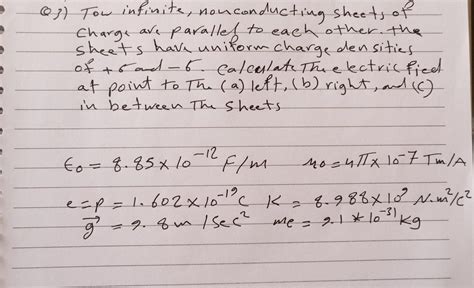 Q3) Tow infinite, nonconducting sheets of
charge are parallel to each other. the
sheets have uniform charge densities
of +σ and -σ calculate The electric fied
at point to The (a) left, (b) right, and (c)
in between The sheets
ε₀ = 8.85 x 10⁻¹² F/m μ₀ = 4π x 10⁻⁷ Tm/A
e = p = 1.602 x 10⁻¹⁹ C K = 8.988 x 10⁹ N.m²/C²
g = 9.8 m/sec² me = 9.1 * 10⁻³¹ kg